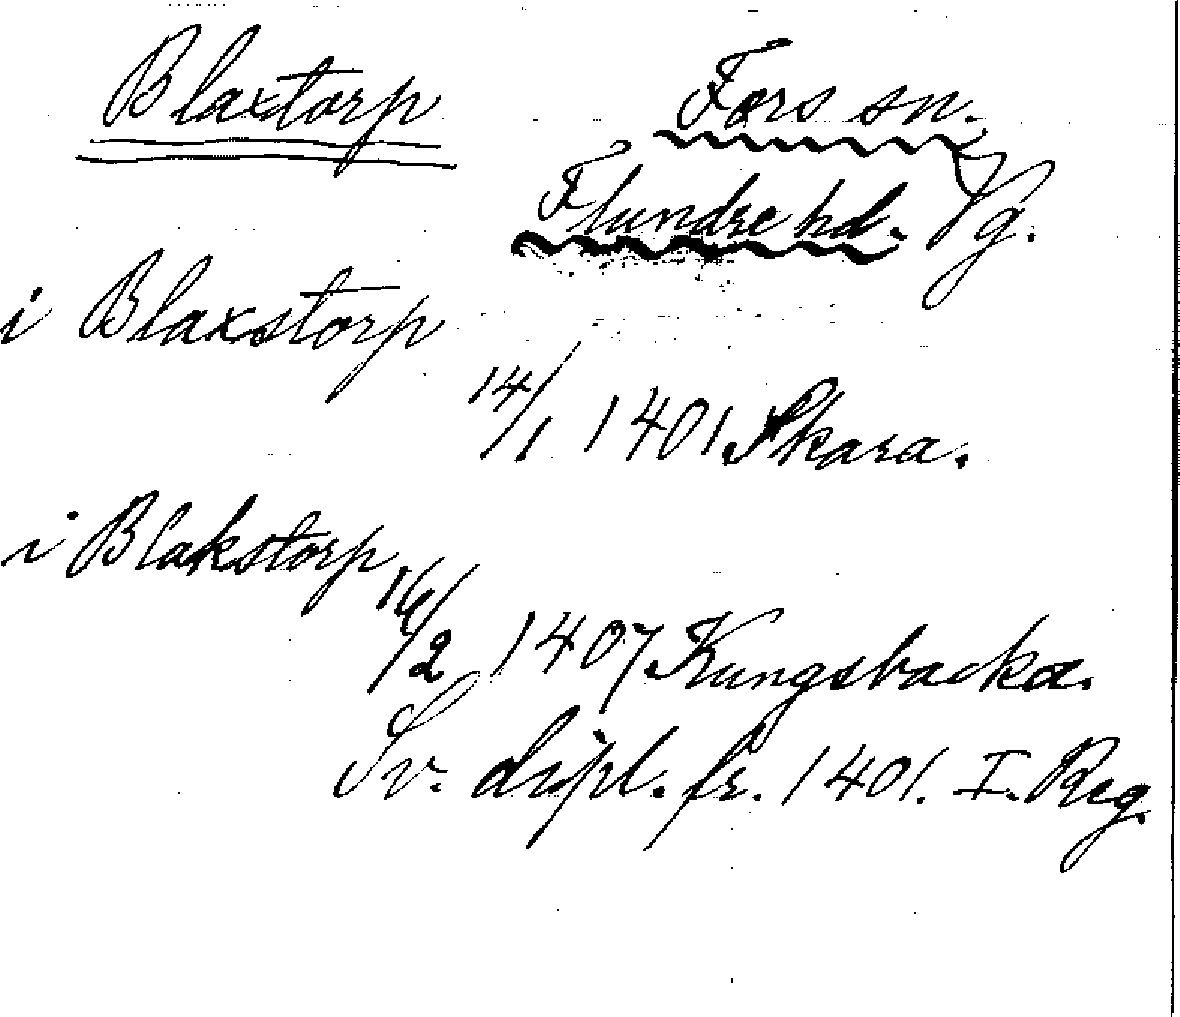 Blaxtorp
Fors sn.
Flundre hd. Vg.
i Blaxstorp
14/1 1401 Skara.
i Blakstorp
16/2 1407 Kungsbacka.
Sv. dipl. fr. 1401. I. Reg.